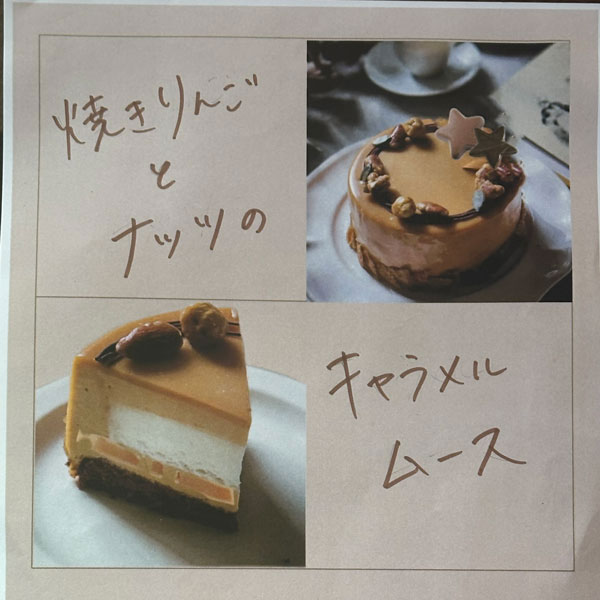 焼きりんご
と
ナッツの
キャラメル
ムース